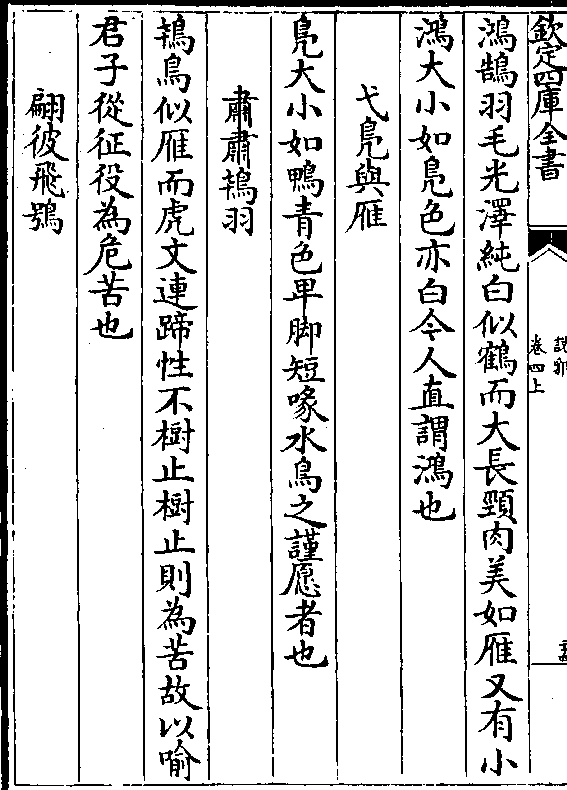 欽定四庫全書
卷四上
鴻鵠羽毛光澤純白似鶴而大長頸肉美如雁又有小
鴻大小如鳧色亦白今人直謂鴻也
弋鳧與雁
鳧大小如鴨青色卑脚短喙水鳥之謹愿者也
肅肅鴇羽
鴇鳥似雁而虎文連蹄性不樹止樹止則為苦故以喻
君子從征役為危苦也
翩彼飛鴞